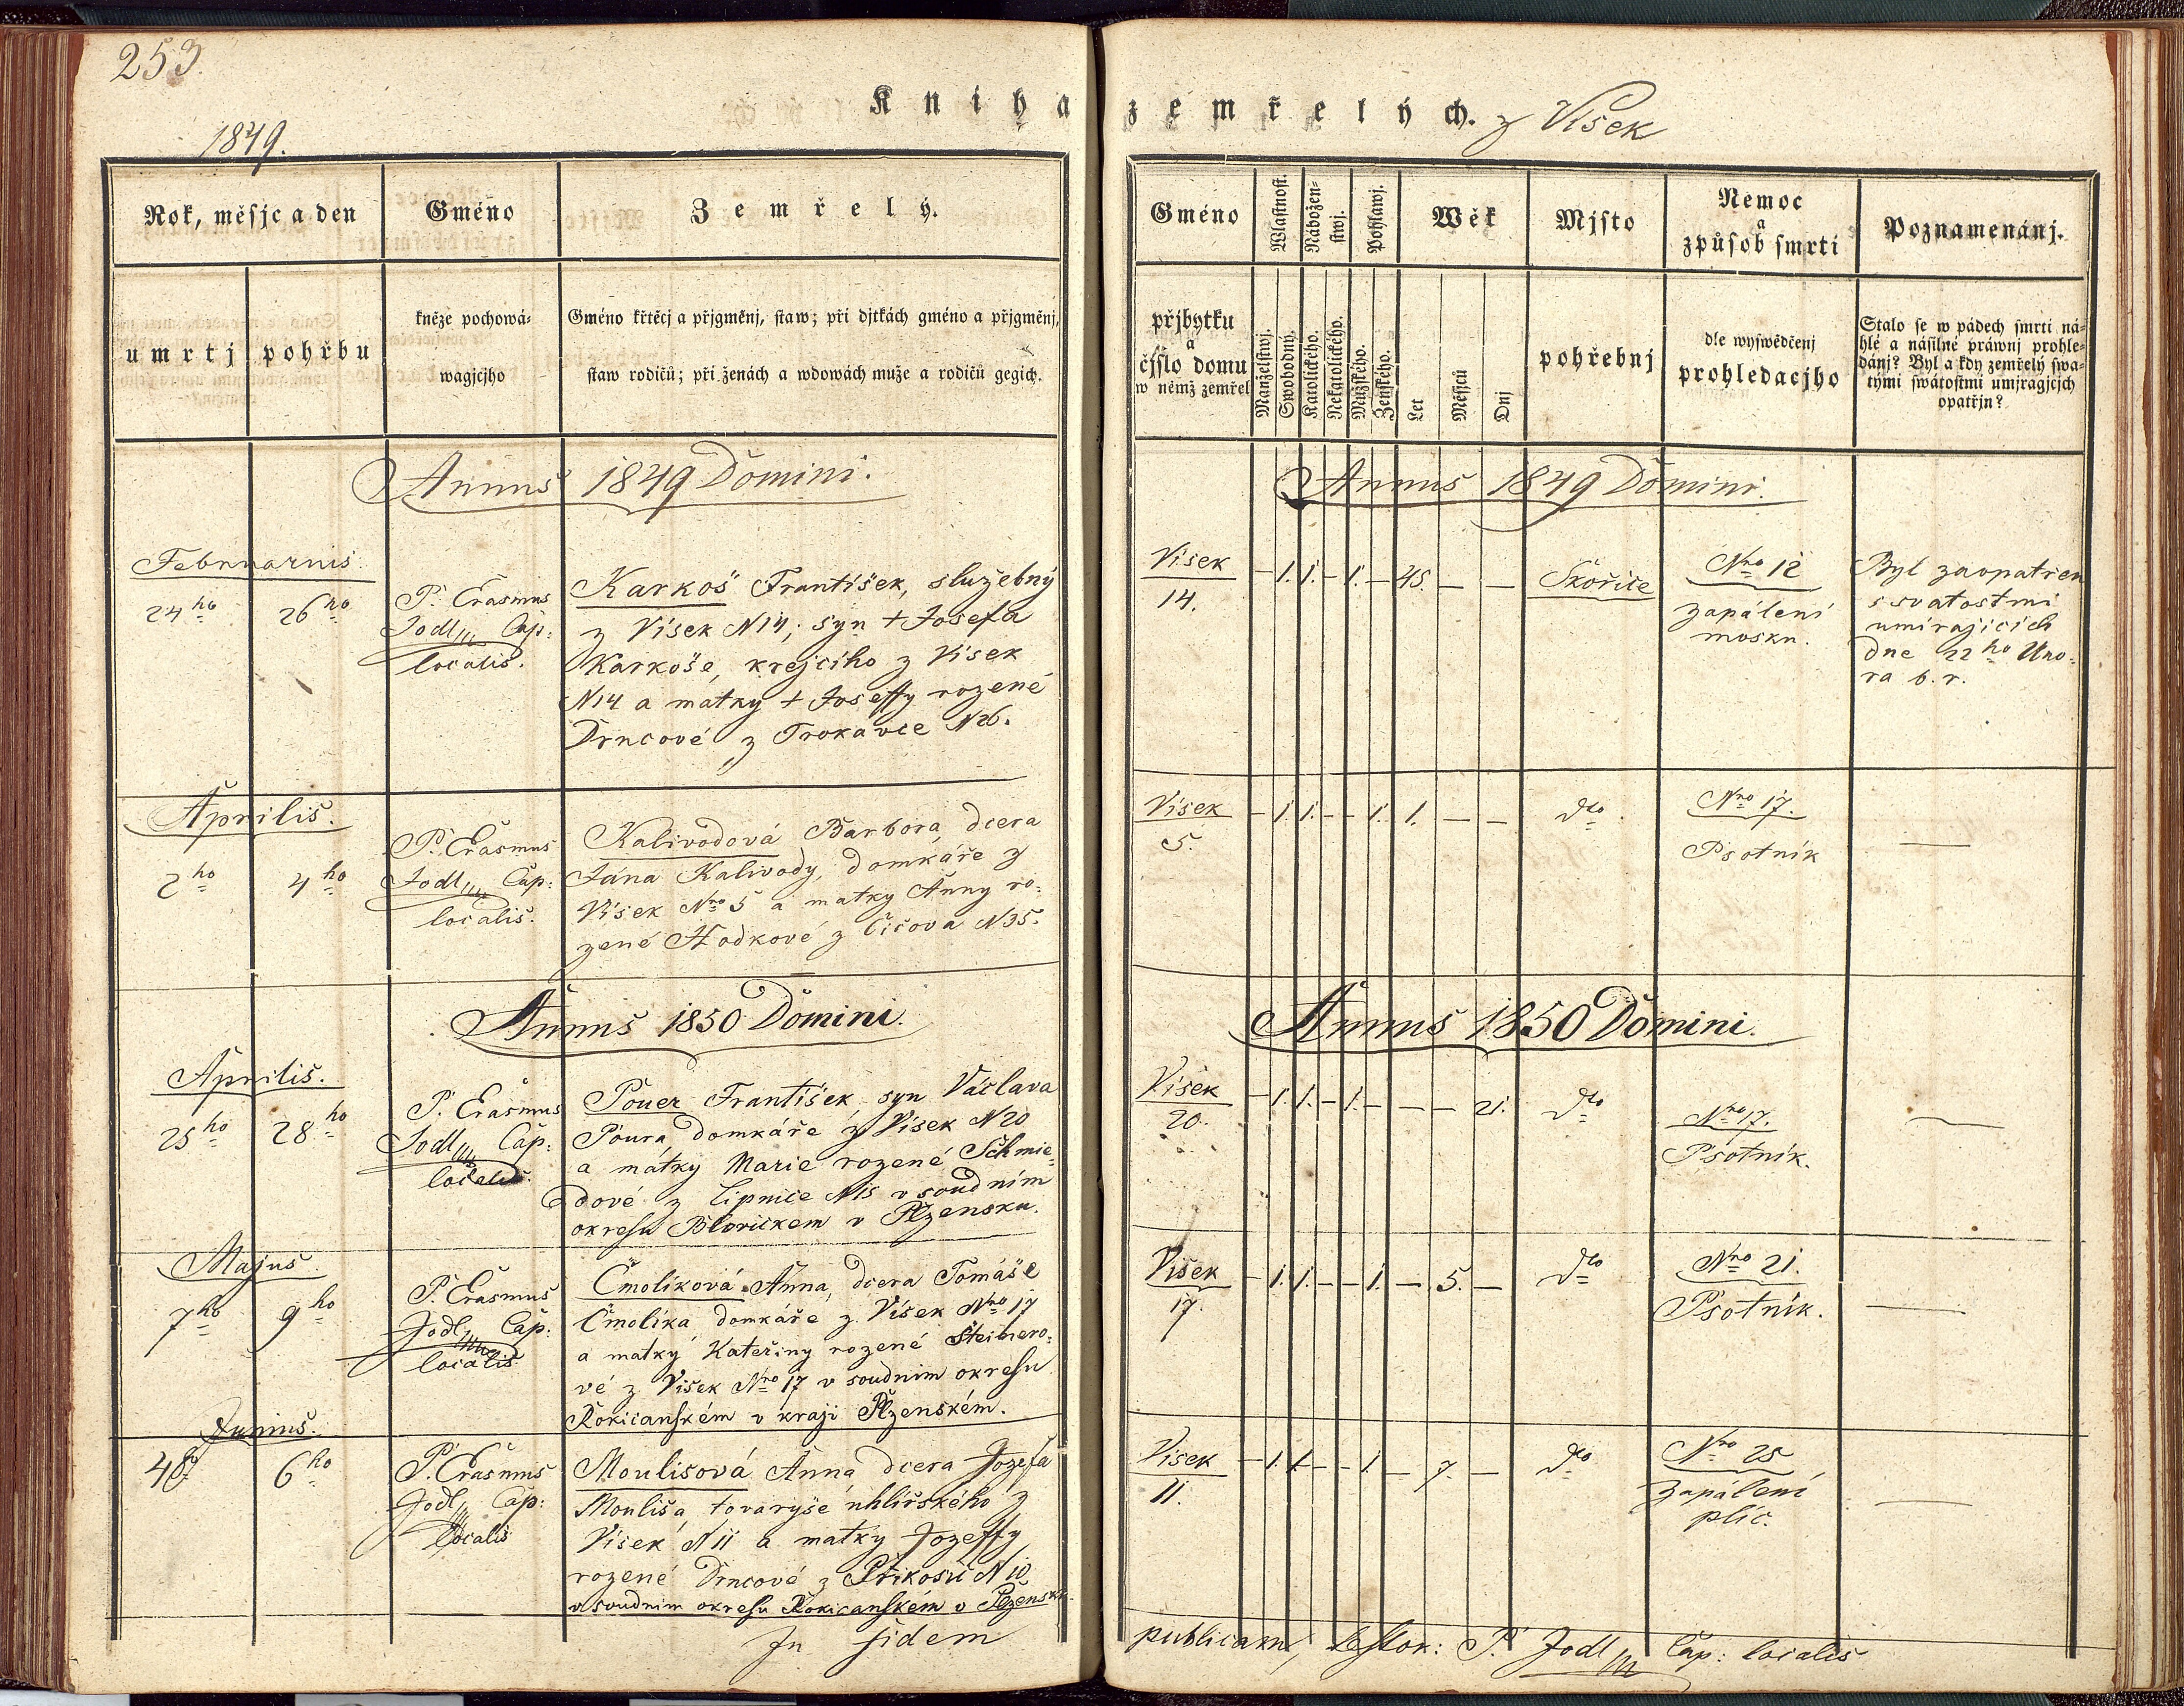 253.
Kniha zemřelých. z Višek
1849.
Rok, měsjc a den
Gméno
Zemřelý.
umrtj
pohřbu
kněze pochowá-
wagjcjho
Gméno křtěcj a přjgměnj, staw; při djtkách gméno a přjgměnj,
staw rodičů; při ženách a wdowách muže a rodičů gegich.
Annus 1849 Domini.
Februarius.
24ho
26ho
P. Erasmus
Jodl Cap:
localis.
Karkoš František, služebný
z Višek N14; syn + Josefa
Karkoše, krejciho z Višek
N14 a matky + Joseffy rozené
Drncové z Trokavce N26.
Aprilis.
2ho
4ho
P. Erasmus
Jodl Cap:
localis.
Kalivodová Barbora, dcera
Jána Kalivody, domkáře z
Višek Nro 5 a matky Anny ro-
zené Hodkové z Čičova N35.
Annus 1850 Domini.
Aprilis.
25ho
28ho
P. Erasmus
Jodl Cap:
localis.
Pouer František syn Václava
Poura domkáře z Višek N20
a mátky Marie rozené Schmie-
dové z Lipnice N15 v soudním
okresu Blovickem v Plzensku.
Majus.
7ho
9ho
P. Erasmus
Jodl Cap:
localis
Čmolíková Anna, dcera Tomáše
Čmolíka domkáře z Višek Nro 17
a matky Kateřiny rozené Steinero-
vé z Višek Nro 17 v soudnim okresu
Rokicanském v kraji Plzenském.
Junius.
6ho
P. Erasmus
Jodl Cap:
localis
Moulisová Anna dcera Jozefa
Mouliša, tovaryše uhlířského z
Višek N11 a matky Jozeffy
rozené Drncové z Příkosic N10
v soudnim okresu Rokicanském v Plzensk
In fidem
Gméno
Wlastnost.
Nábožen-
stwj.
Pohlawj.
Wěk
Mjsto
Nemoc
a
způsob smrti
Poznamenánj.
přjbytku
a
čjslo domu
w němž zemřel
Manželstwj.
Swobodný.
Katolického.
Nekatolického.
Mužského.
Ženského.
Let
Měsjců
Dnj
pohřebnj
dle wyswědčenj
prohledacjho
Stalo se w pádech smrti ná-
hlé a násilné práwnj prohle-
dánj? Byl a kdy zemřelý swa-
tými swátostmi umjragjcjch
opatřjn?
Annus 1849 Domini.
Višek
14.
– 1. 1. – 1. – 45. – –
Skořice
Nro 12
zapálení
mosku.
Byl zaopatřen
s svatostmi
umirajicich
dne 22ho Uno-
ra b. r.
Višek
5.
– 1. 1. – – 1. 1. – –
dto
Nro 17.
Psotník
—
Annus 1850 Domini.
Višek
20.
– 1. 1. – 1. – – – 21.
dto
Nro 17.
Psotník.
—
Višek
17.
– 1. 1. – – 1. – 5. –
dto
Nro 21.
Psotník.
—
Višek
11.
– 1. 1. – – 1. – 7. –
dto
Nro 25
Zapálení
plic.
—
publicam, P. Jodl Cap: localis